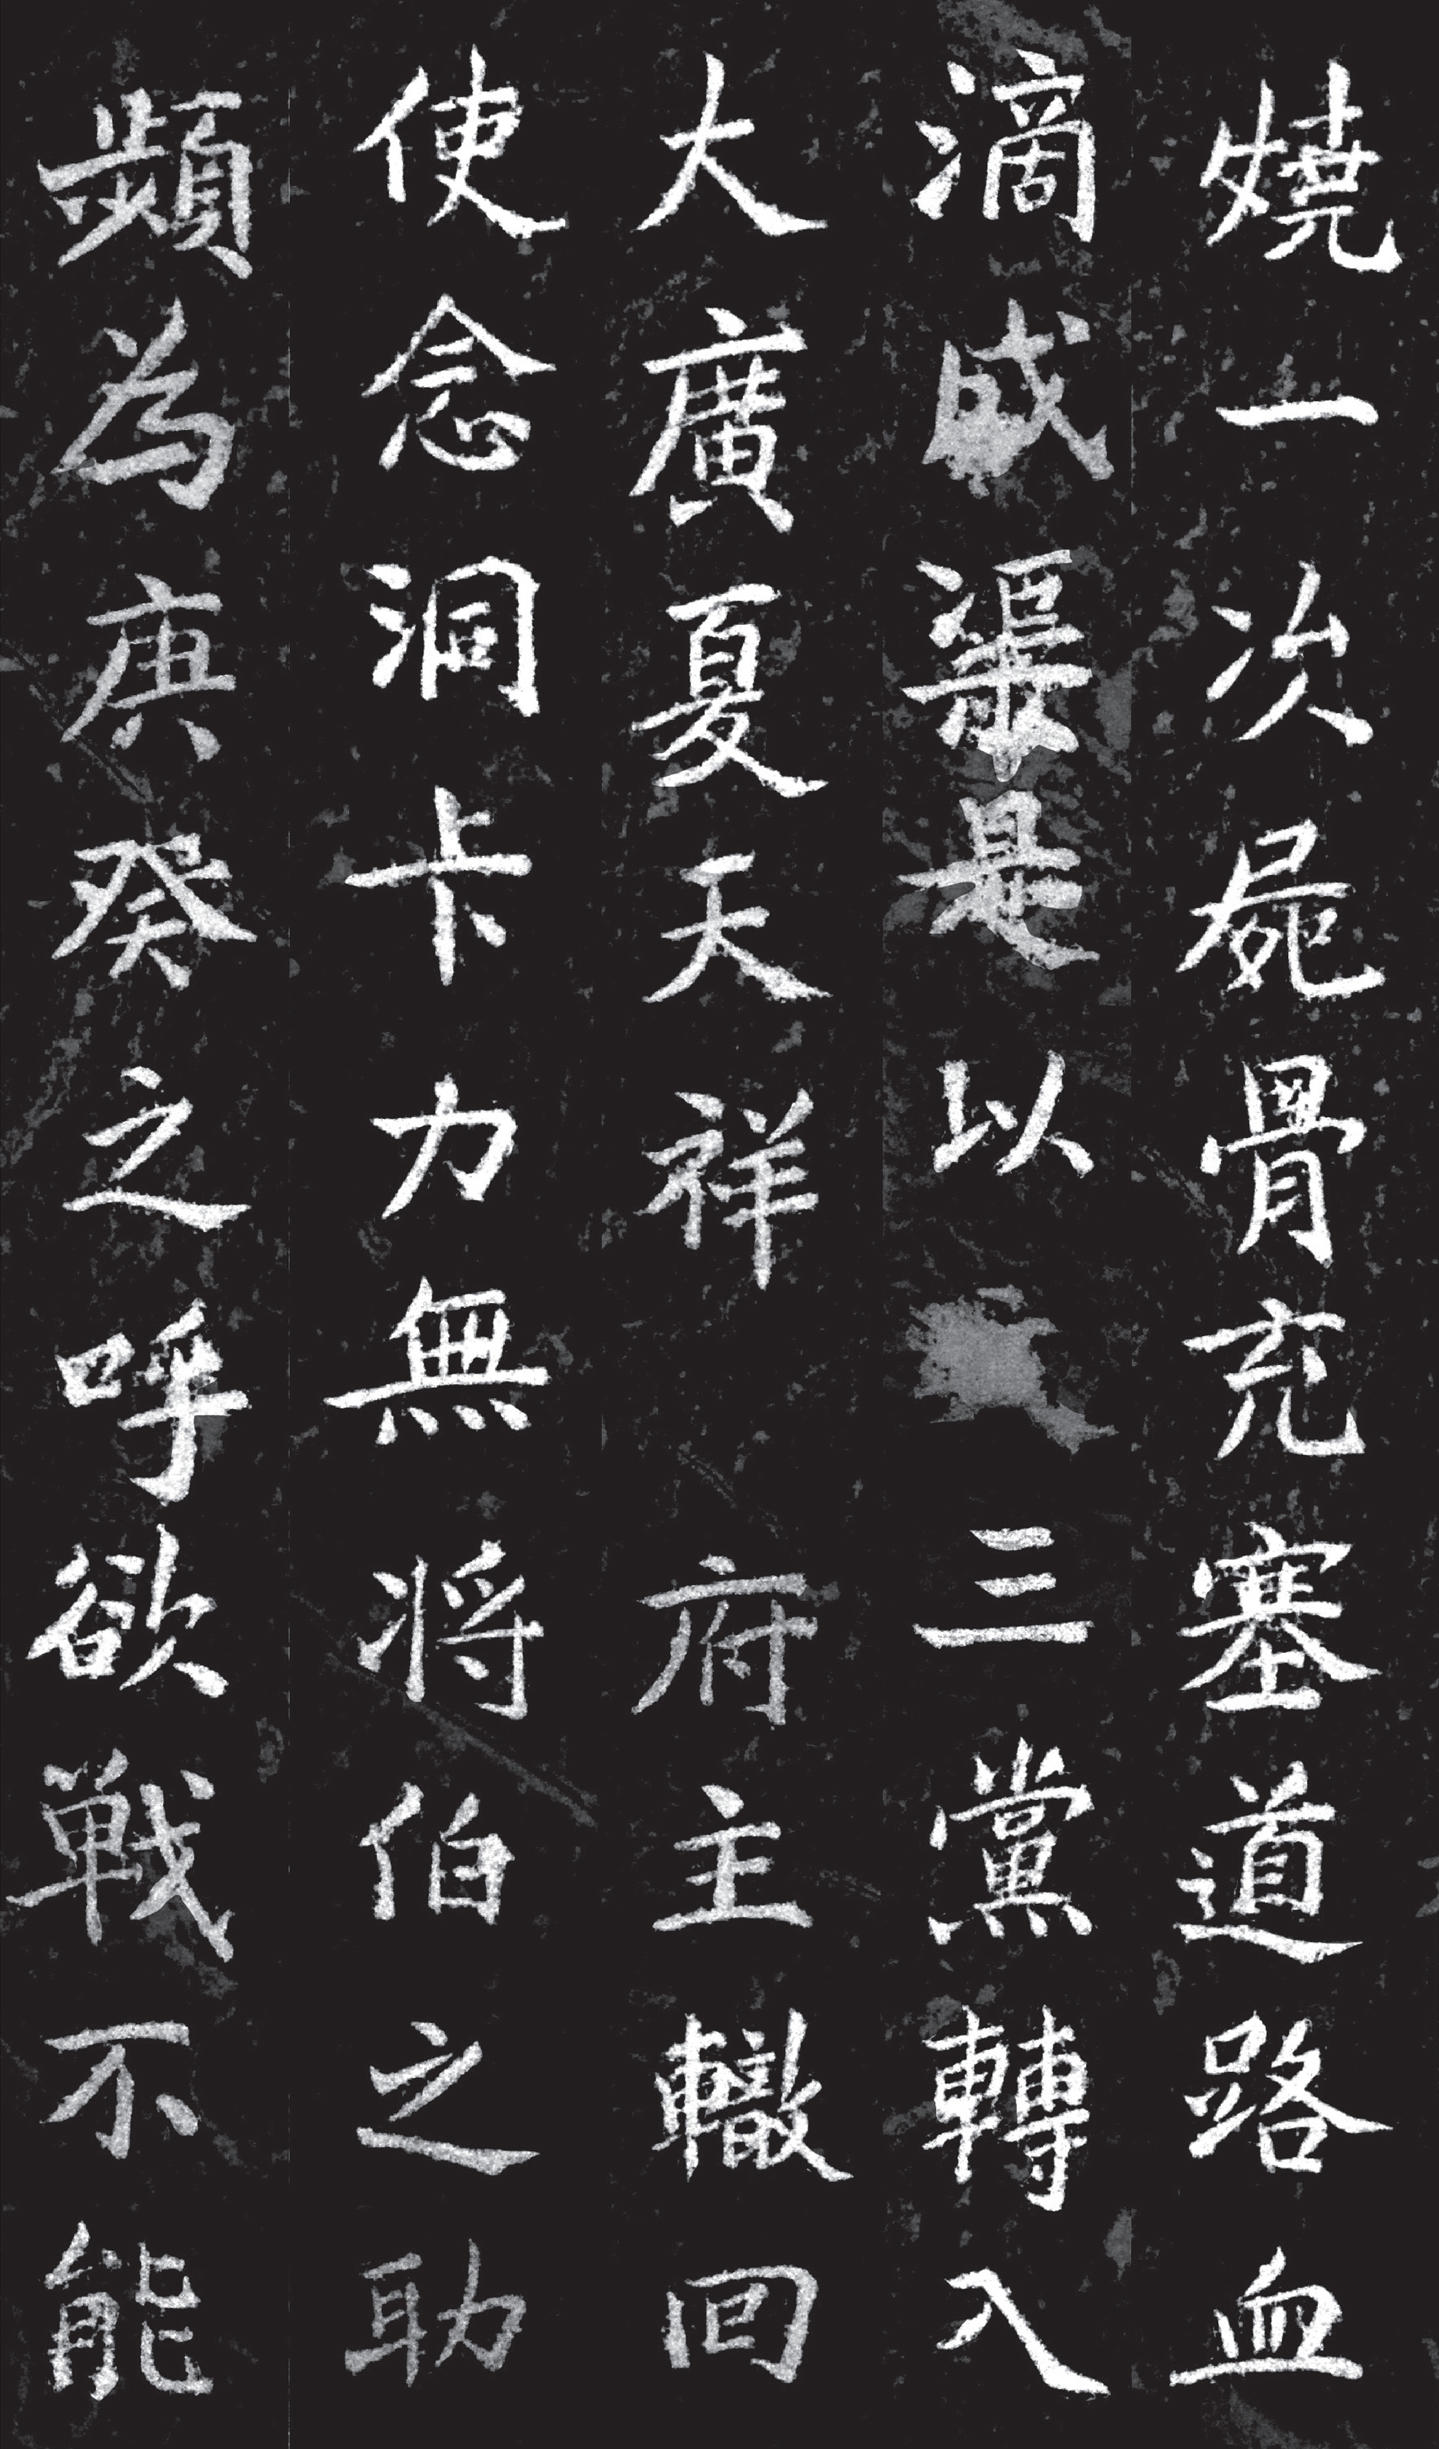 燒一次屍骨充塞道路血
滴成渠是以三黨轉入
大廣夏天祥府主轍回
使念洞卡力無将伯之助
頻為庚癸之呼欲戰不能